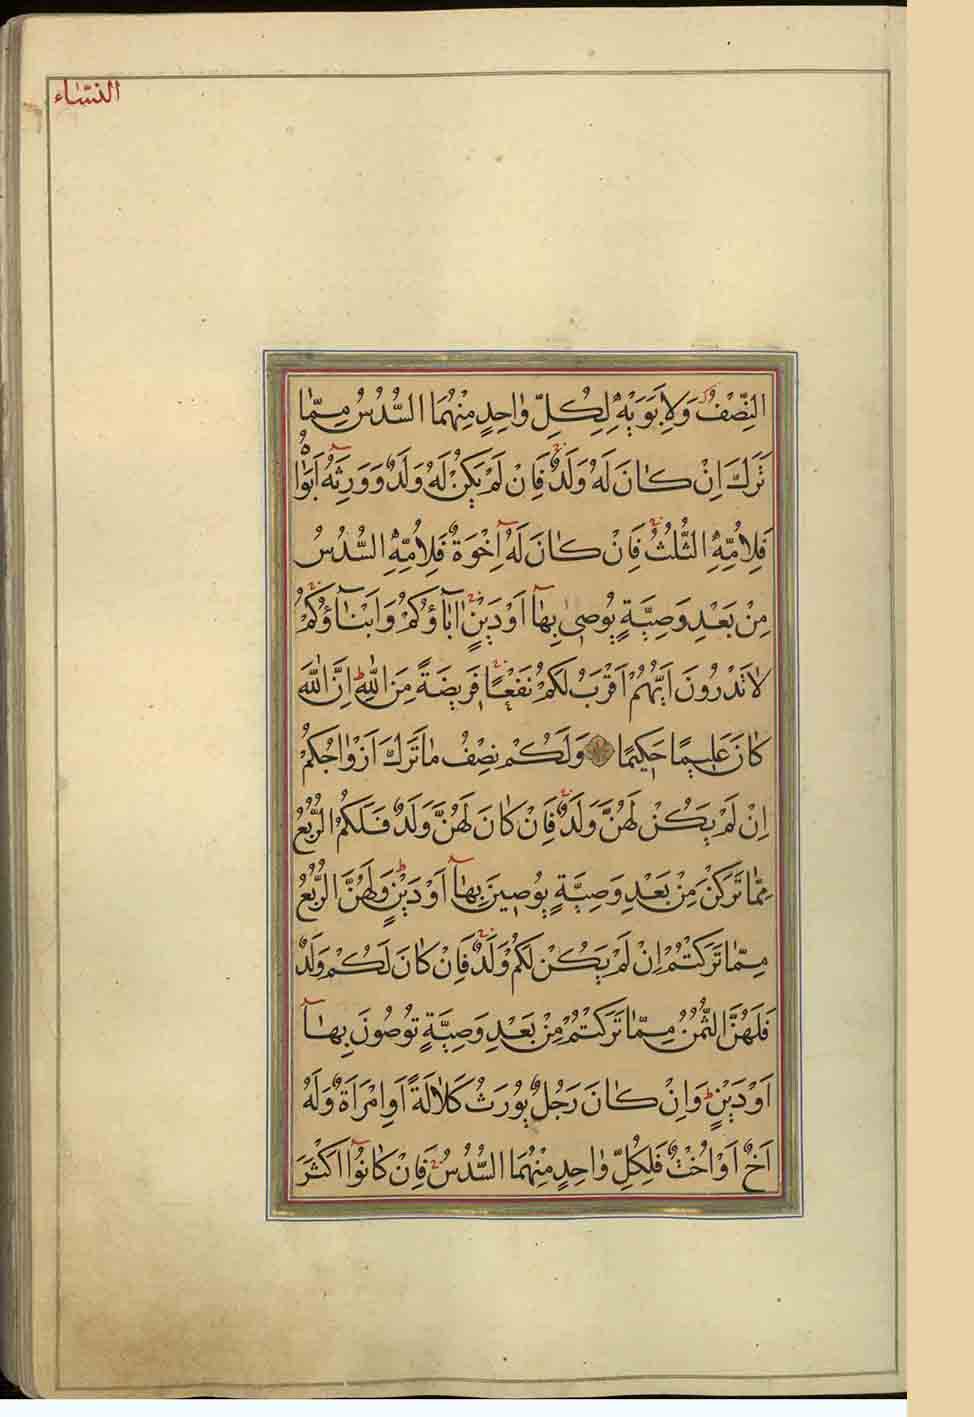 النسّاء
النِّصْفُ وَلِاَبَوَيْهِ لِكُلِّ وٰاحِدٍ مِنْهُمَا السُّدُسُ مِمّٰا
تَرَكَ اِنْ كٰانَ لَهُ وَلَدٌ فَاِنْ لَمْ يَكُنْ لَهُ وَلَدٌ وَوَرِثَهُ اَبَوٰاهُ
فَلِاُمِّهِ الثُّلُثُ فَاِنْ كٰانَ لَهُ اِخْوَةٌ فَلِاُمِّهِ السُّدُسُ
مِنْ بَعْدِ وَصِيَّةٍ يُوصٖى بِهٰا اَوْ دَيْنٍ اٰبٰاؤُكُمْ وَاَبْنٰاؤُكُمْ
لاٰ تَدْرُونَ اَيُّهُمْ اَقْرَبُ لَكُمْ نَفْعًا فَرِيضَةً مِنَ اللّٰهِ اِنَّ اللّٰهَ
كٰانَ عَلِيمًا حَكِيمًا وَلَكُمْ نِصْفُ مٰا تَرَكَ اَزْوٰاجُكُمْ
اِنْ لَمْ يَكُنْ لَهُنَّ وَلَدٌ فَاِنْ كٰانَ لَهُنَّ وَلَدٌ فَلَكُمُ الرُّبُعُ
مِمّٰا تَرَكْنَ مِنْ بَعْدِ وَصِيَّةٍ يُوصِينَ بِهٰا اَوْ دَيْنٍ وَلَهُنَّ الرُّبُعُ
مِمّٰا تَرَكْتُمْ اِنْ لَمْ يَكُنْ لَكُمْ وَلَدٌ فَاِنْ كٰانَ لَكُمْ وَلَدٌ
فَلَهُنَّ الثُّمُنُ مِمّٰا تَرَكْتُمْ مِنْ بَعْدِ وَصِيَّةٍ تُوصُونَ بِهٰا
اَوْ دَيْنٍ وَاِنْ كٰانَ رَجُلٌ يُورَثُ كَلاٰلَةً اَوِ امْرَاَةٌ وَلَهُ
اَخٌ اَوْ اُخْتٌ فَلِكُلِّ وٰاحِدٍ مِنْهُمَا السُّدُسُ فَاِنْ كٰانُوا اَكْثَرَ